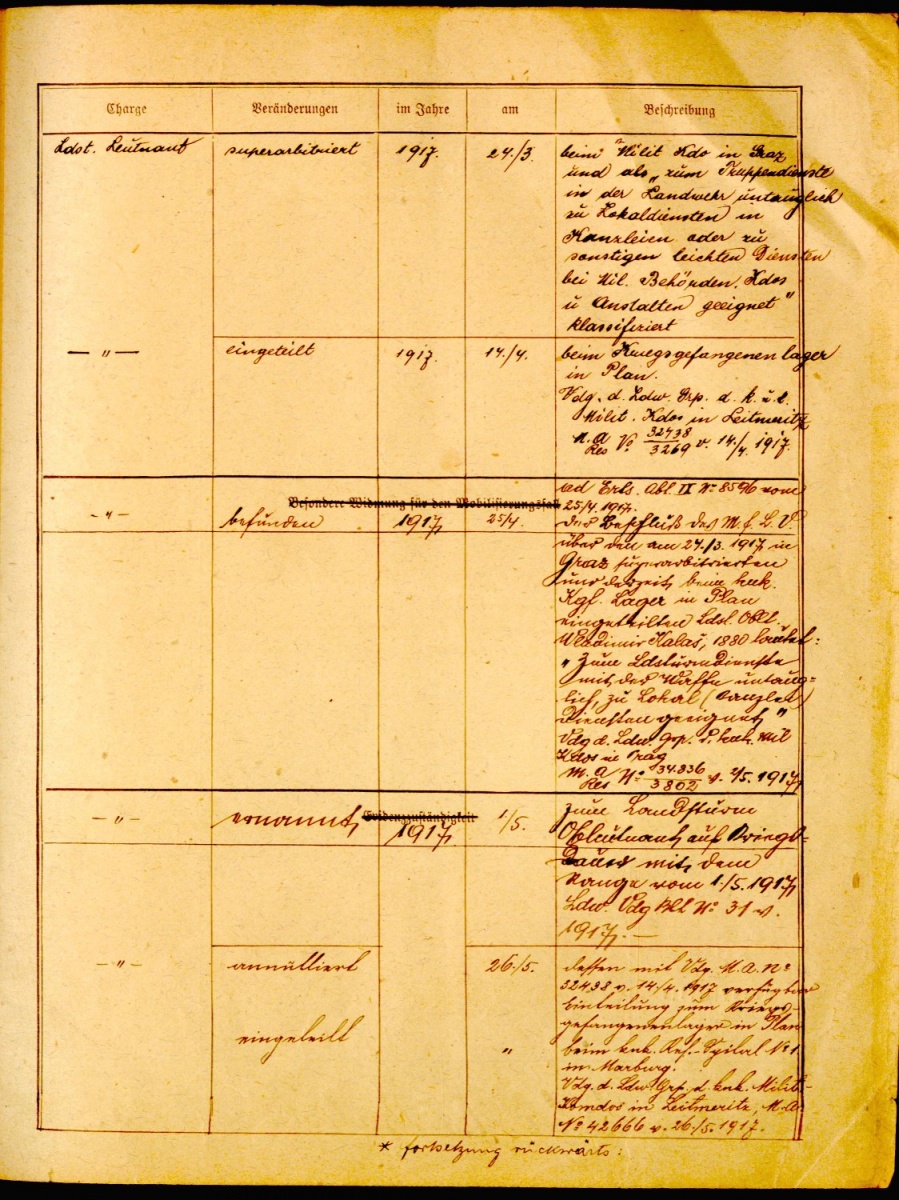 Charge Veränderungen im Jahre am Beschreibung
Ldst. Leutnant superarbitriert 1917. 24./3. beim Milit Kdo in Graz
und als „zum Truppendienste
in der Landwehr untauglich
zu Lokaldiensten in
Kanzleien oder zu
sonstigen leichten Diensten
bei Mil. Behörden, Kdos
u Anstalten geeignet"
klassifiziert
— " — eingeteilt 1917. 14./4. beim Kriegsgefangenenlager
in Plan.
Vdg. d. Ldw. Grp. d. k. u. k.
Milit. Kdos in Leitmeritz
M.A Res No 32438/3269 v. 14./4. 1917.
ad Erls. Abt. II No 8596 vom
Besondere Widmung für den Mobilisierungsfall 25/4. 1917.
- " - befunden 1917 25/4. Der Beschluß des M. f. L. V.
über den am 24./3. 1917 in
Graz superarbitrierten
und derzeit beim k.u.k.
Kgf. Lager in Plan
eingeteilten Ldst. Oblt.
Wladimir Kalaš, 1880 lautet:
„Zum Ldsturmdienste
mit der Waffe untaug-
lich, zu Lokal (Kanzlei)
Diensten geeignet"
Vdg d. Ldw. Grp. d. k.u.k. Mil
Kdos in Prag
M.A Res No 34.836/3802 v. /5. 1917
- " - ernannt Evidenzzuständigkeit 1917 1/5. zum Landsturm
Obleutnant auf Kriegs-
Dauer mit dem
Range vom 1./5. 1917
Ldw. Vdg Bl No 31 v.
1917. —
- " - annulliert 26./5. dessen mit Vdg. M.A. No
32438 v. 14./4. 1917 verfügte
Einteilung zum Kriegs-
gefangenenlager in Plan
eingeteilt " beim k.u.k. Res.-Spital No 1
in Marburg.
Vdg. d. Ldw. Grp. d. k.u.k. Milit.-
Komdos in Leitmeritz, M.A.
No 42666 v. 26./5. 1917.
* fortsetzung rückwärts: